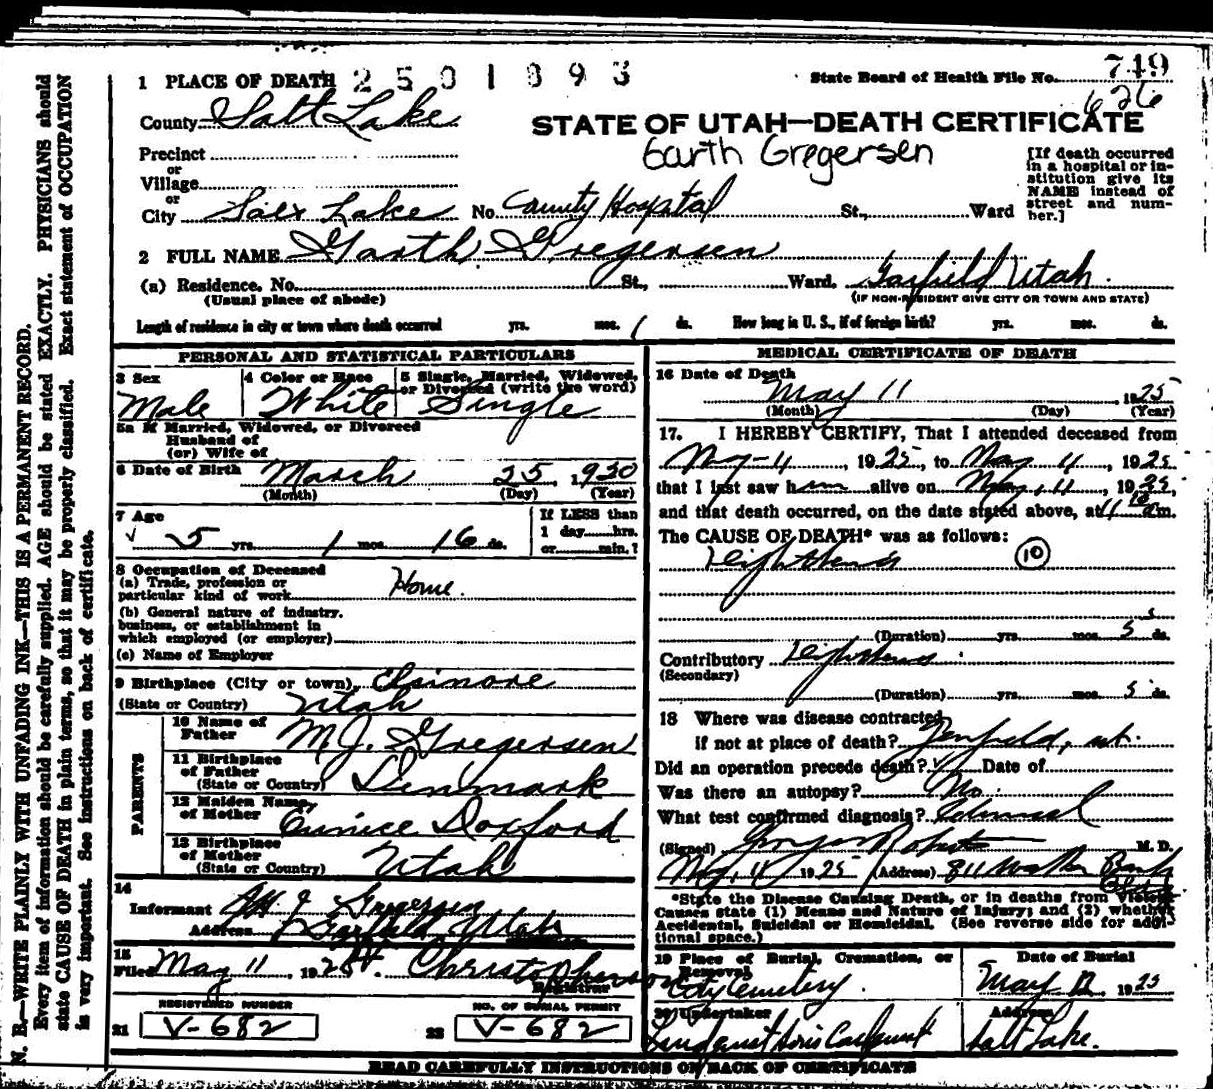 1 PLACE OF DEATH 2501893
State Board of Health File No. 749
626
County Salt Lake
STATE OF UTAH—DEATH CERTIFICATE
Garth Gregersen
Precinct
or
Village
or
City Salt Lake No. County Hospital St., Ward
[If death occurred
in a hospital or in-
stitution give its
NAME instead of
street and num-
ber.]
2 FULL NAME Garth Gregersen
(a) Residence. No. St., Ward. Garfield Utah.
(Usual place of abode) (IF NON-RESIDENT GIVE CITY OR TOWN AND STATE)
Length of residence in city or town where death occurred yrs. mos. 1 ds. How long in U. S., if of foreign birth? yrs. mos. ds.
PERSONAL AND STATISTICAL PARTICULARS
3 Sex 4 Color or Race 5 Single, Married, Widowed,
or Divorced (write the word)
Male White Single
5a If Married, Widowed, or Divorced
Husband of
(or) Wife of
6 Date of Birth March 25, 1920
(Month) (Day) (Year)
7 Age
5 yrs. 1 mos. 16 ds.
If LESS than
1 day hrs.
or min.?
8 Occupation of Deceased
(a) Trade, profession or
particular kind of work Home.
(b) General nature of industry.
business, or establishment in
which employed (or employer)
(c) Name of Employer
9 Birthplace (City or town) Elsinore
(State or Country) Utah
PARENTS
10 Name of
Father M. J. Gregersen
11 Birthplace
of Father
(State or Country) Denmark
12 Maiden Name
of Mother Eunice Doxford
13 Birthplace
of Mother
(State or Country) Utah
14
Informant M J Gregersen
Address Garfield Utah
15
Filed May 11, 1925 H. Christopherson
Registrar
REGISTERED NUMBER NO. OF BURIAL PERMIT
21 V-682 22 V-682
MEDICAL CERTIFICATE OF DEATH
16 Date of Death
May 11, 1925
(Month) (Day) (Year)
17. I HEREBY CERTIFY, That I attended deceased from
May 11, 1925, to May 11, 1925
that I last saw him alive on May 11, 1925,
and that death occurred, on the date stated above, at 11 10 a m.
The CAUSE OF DEATH* was as follows:
Diphtheria 10
(Duration) yrs. mos. 5 ds.
Contributory Diphtheria
(Secondary)
(Duration) yrs. mos. 5 ds.
18 Where was disease contracted
if not at place of death? Garfield, ut.
Did an operation precede death? Date of
Was there an autopsy? No.
What test confirmed diagnosis? Clinical
(Signed) M. D.
May 11 1925 (Address) 811 Walker Bank
Bldg
*State the Disease Causing Death, or in deaths from Violent
Causes state (1) Means and Nature of Injury; and (2) whether
Accidental, Suicidal or Homicidal. (See reverse side for addi-
tional space.)
19 Place of Burial, Cremation, or
Removal Date of Burial
City Cemetery. May 12, 1925
20 Undertaker Address
Salt Lake.
READ CAREFULLY INSTRUCTIONS ON BACK OF CERTIFICATE
N. B.—WRITE PLAINLY WITH UNFADING INK—THIS IS A PERMANENT RECORD.
Every item of information should be carefully supplied. AGE should be stated EXACTLY. PHYSICIANS should
state CAUSE OF DEATH in plain terms, so that it may be properly classified. Exact statement of OCCUPATION
is very important. See instructions on back of certificate.